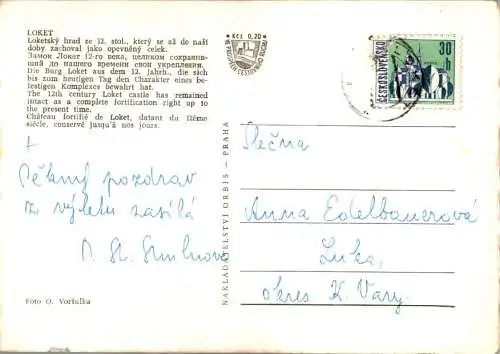 LOKET
Loketský hrad ze 12. stol., který se až do naší
doby zachoval jako opevněný celek.
Замок Локет 12-го века, целиком сохранив-
ший до нашего времени свои укрепления.
Die Burg Loket aus dem 12. Jahrh., die sich
bis zum heutigen Tag den Charakter eines be-
festigten Komplexes bewahrt hat.
The 12th century Loket castle has remained
intact as a complete fortification right up to
the present time.
Château fortifié de Loket, datant du 12ème
siècle, conservé jusqu'à nos jours.
Kčs 0,20
ČESKOSLOVENSKO
30
h
NAKLADATELSTVÍ ORBIS – PRAHA
+
Pěkný pozdrav
z výletu zasílá
Slečna
Anna Edelbauerová
Luka,
okres K. Vary.
Foto O. Voršulka